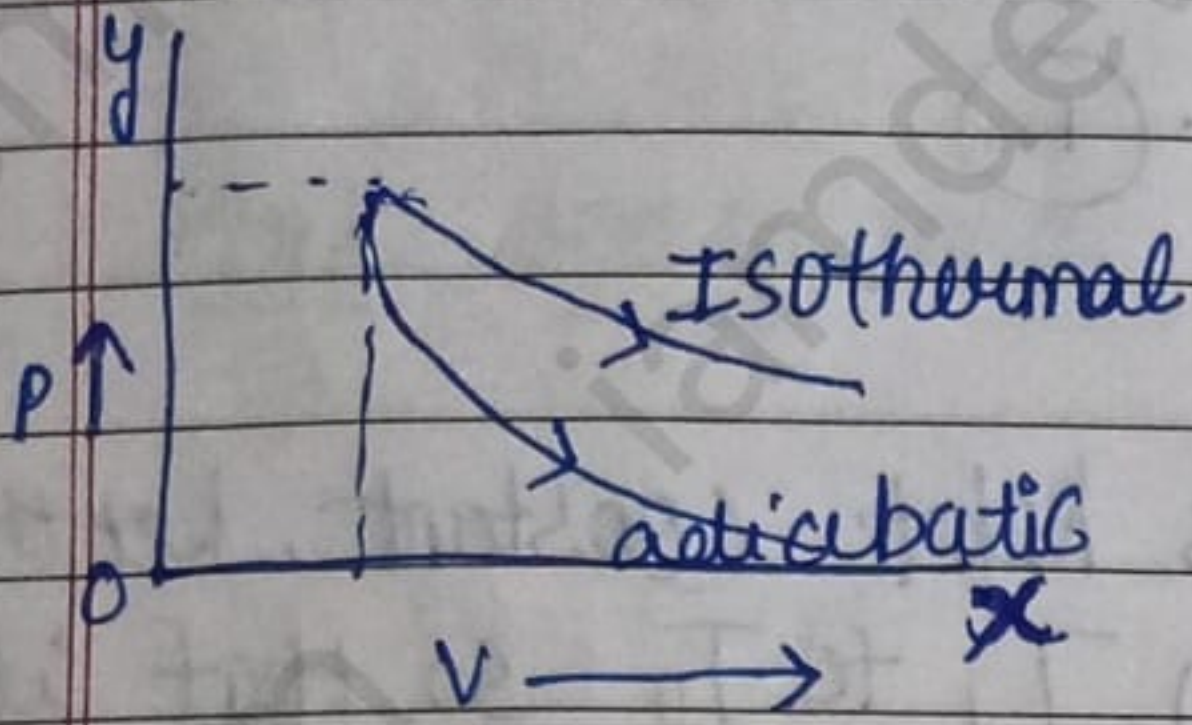 y
Isothermal
P
adiabatic
O
x
V